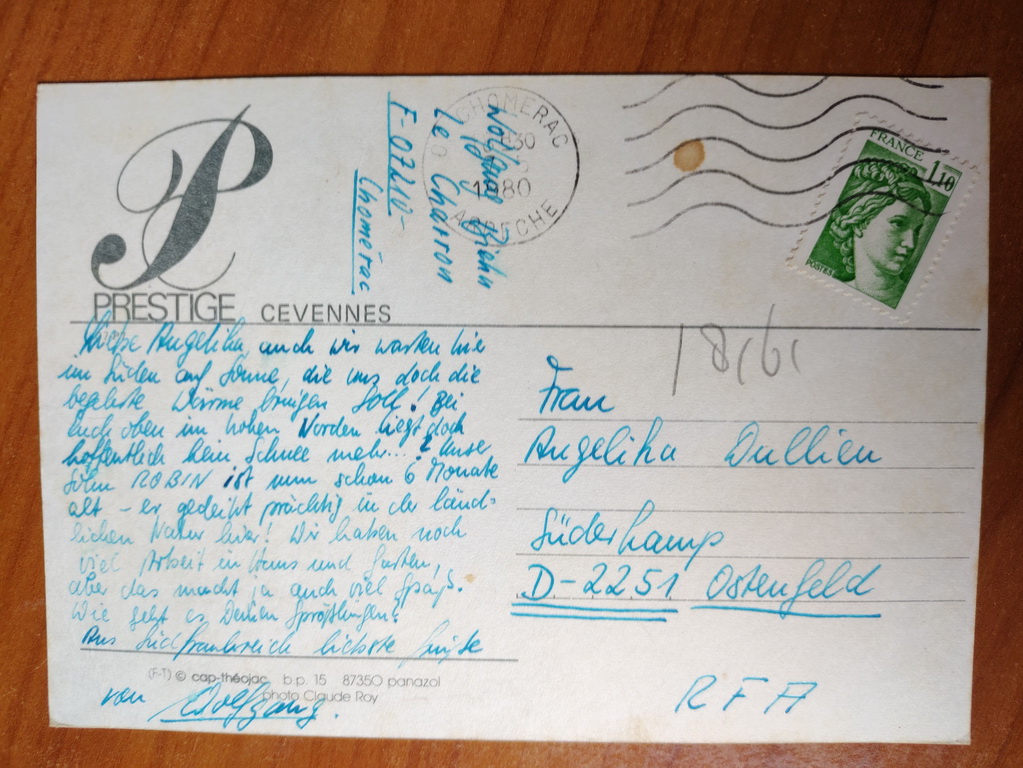 PRESTIGE CEVENNES
CHOMERAC
1980
ARDECHE
Le Charron
F-07210-
Chomérac
FRANCE
1,10
POSTES
Liebe Angelika, auch wir warten hier
im Süden auf Sonne, die uns doch die
begehrte Wärme bringen soll! Bei
Euch oben im hohen Norden liegt doch
hoffentlich kein Schnee mehr...? Unser
Sohn ROBIN ist nun schon 6 Monate
alt – er gedeiht prächtig in der länd=
lichen Natur hier! Wir haben noch
viel Arbeit in Haus und Garten,
aber das macht ja auch viel Spaß.
Wie geht es Deinen Sprößlingen?
Aus Südfrankreich liebste Grüße
von Wolfgang.
(F-T) © cap-théojac b.p. 15 87350 panazol
photo Claude Roy
Frau
Angelika Dullien
Süderkamp
D-2251 Ostenfeld
RFA